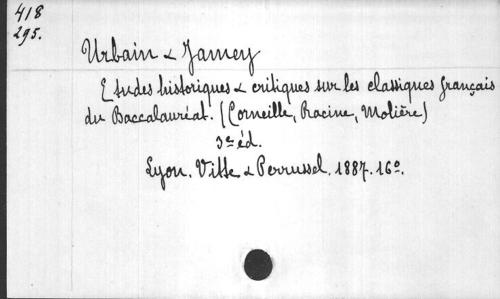 418
295.
Urbain & Jamey
Etudes historiques & critiques sur les classiques français
du Baccalauréat. (Corneille, Racine, Molière)
3e éd.
Lyon. Vitte & Perrussel. 1887. 16o.